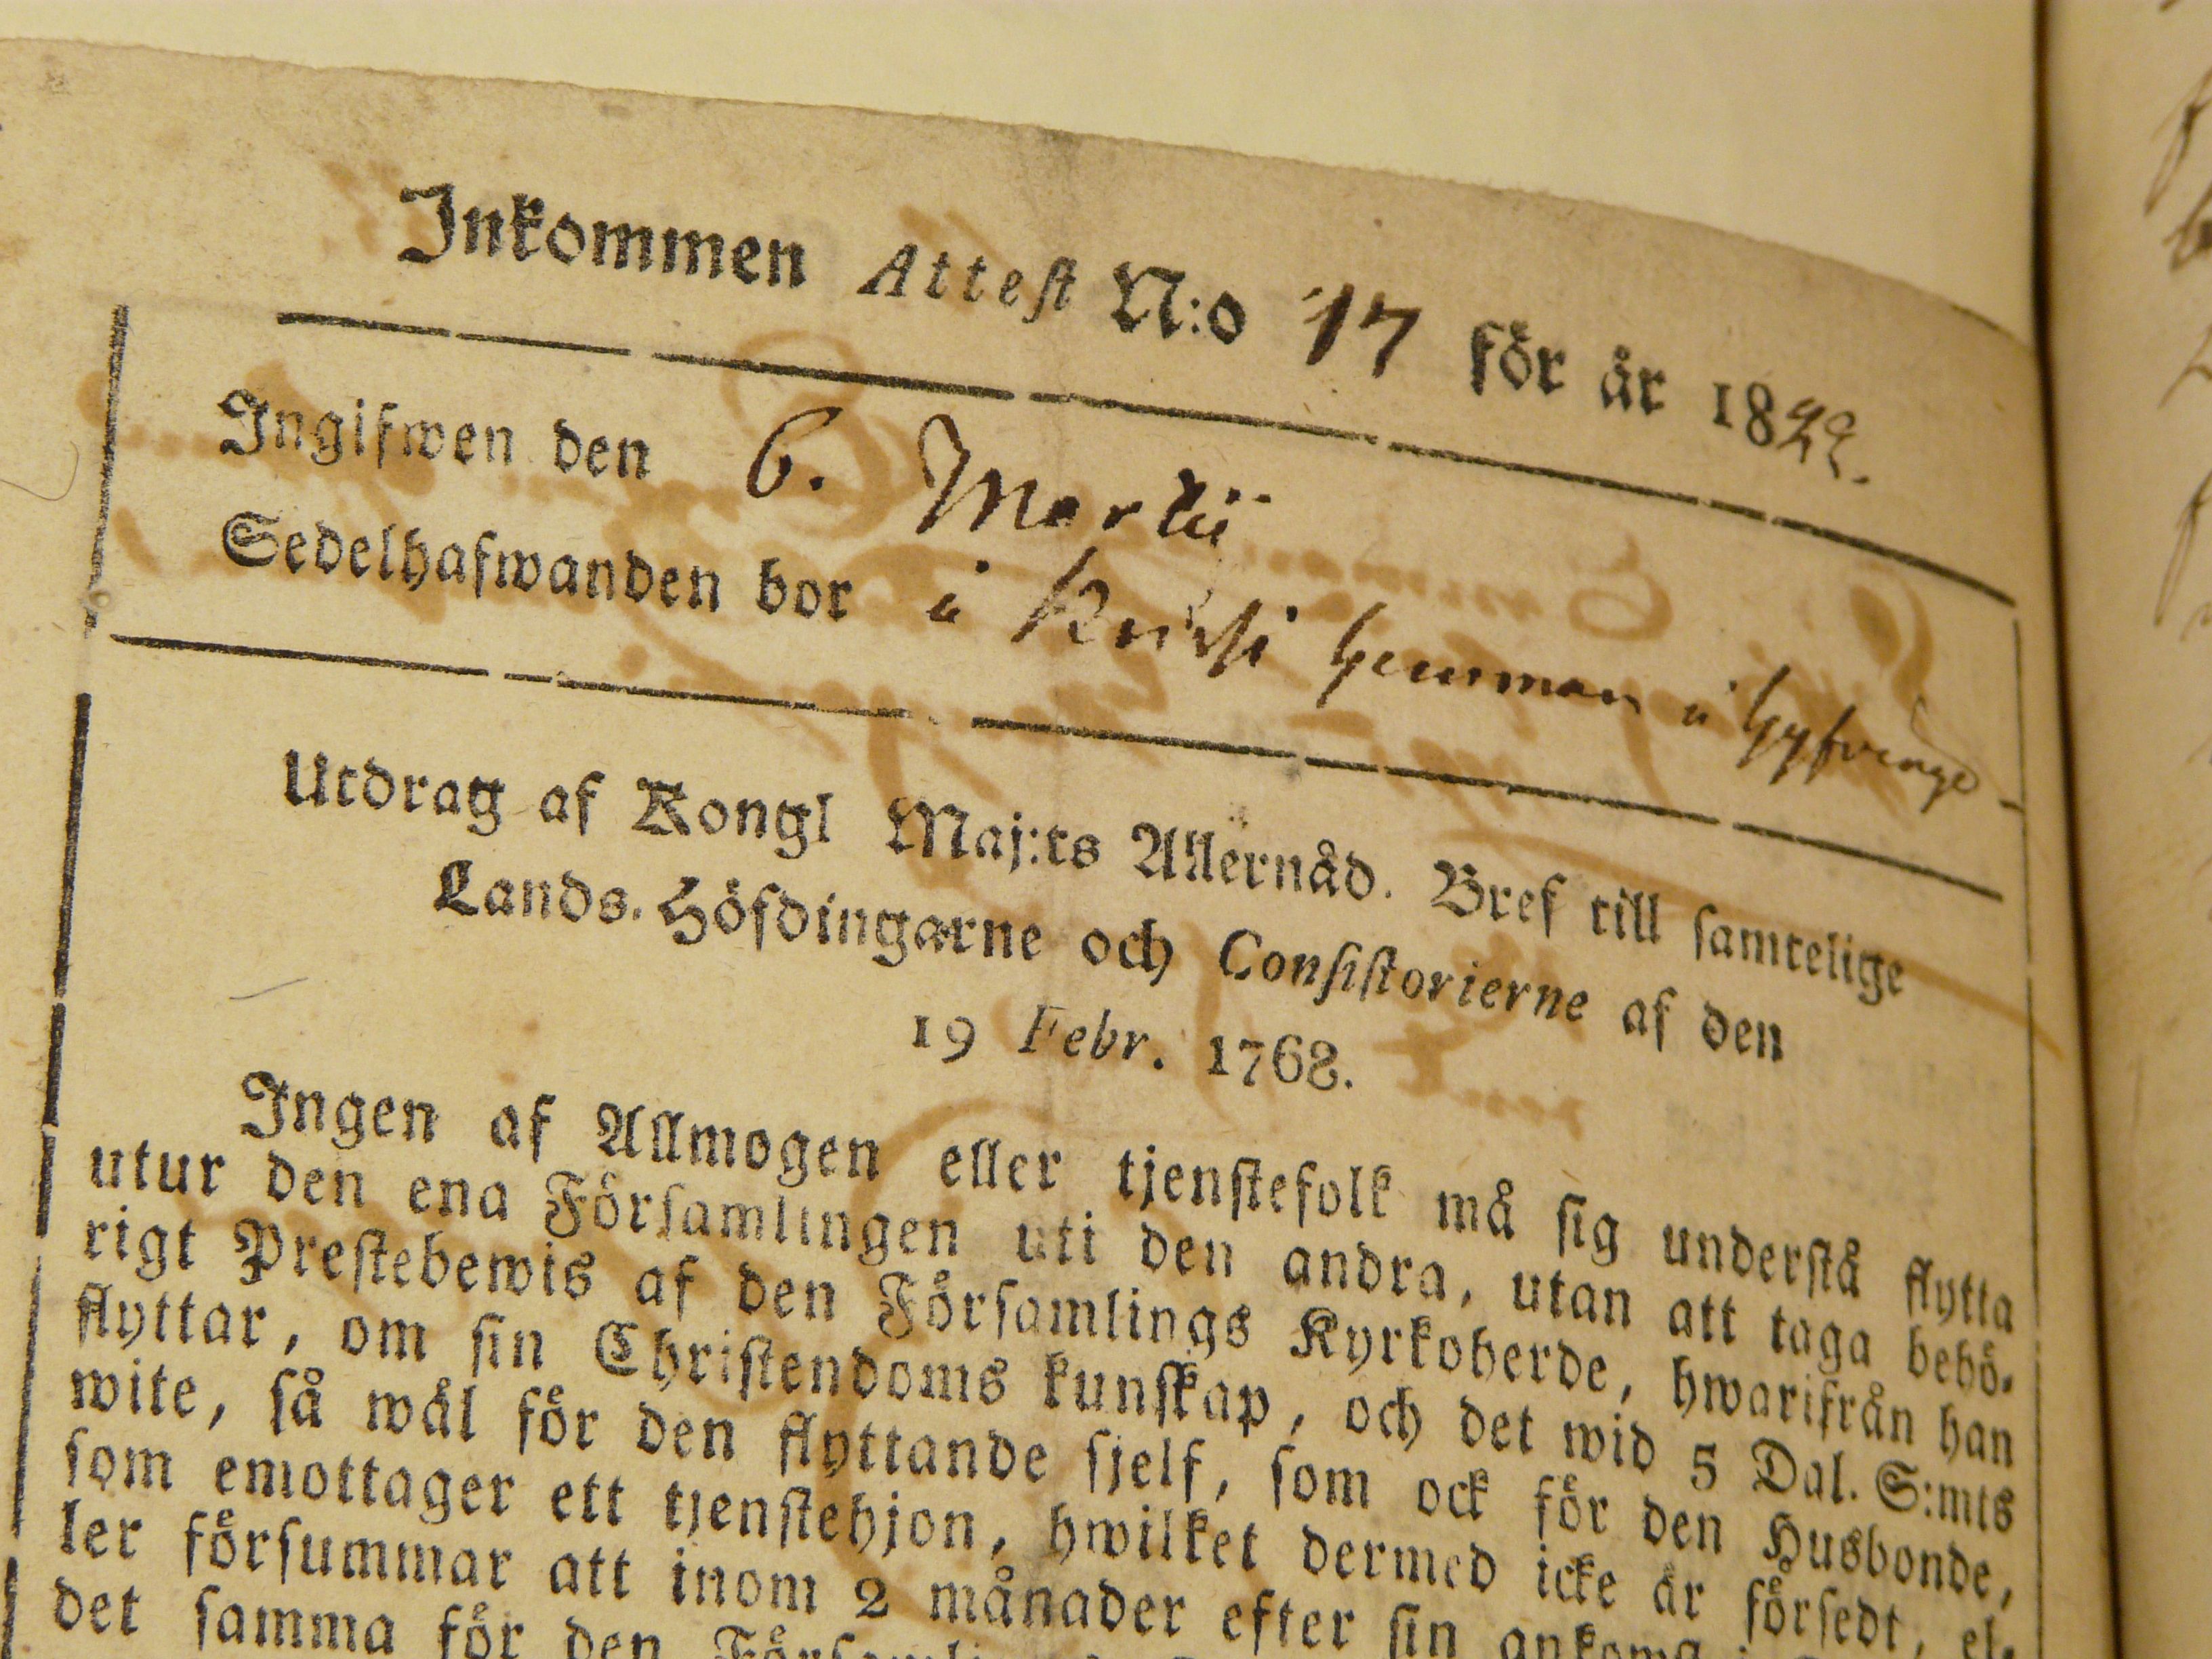 Inkommen Attest N:o 17 för år 1822.
Ingifwen den 6. Martii
Sedelhafwanden bor i hemman i
Utdrag af Kongl Maj:ts Allernåd. Bref till samtelige
Lands-Höfdingarne och Consistorierne af den
19 Febr. 1768.
Ingen af Allmogen eller tjenstefolk må sig understå flytta
utur den ena Församlingen uti den andra, utan att taga behö-
rigt Prestebewis af den Församlings Kyrkoherde, hwarifrån han
flyttar, om sin Christendoms kunskap, och det wid 5 Dal. S:mts
wite, så wäl för den flyttande sjelf, som ock för den Husbonde,
som emottager ett tjenstehjon, hwilket dermed icke är försedt, el-
ler försummar att inom 2 månader efter sin
det samma för den